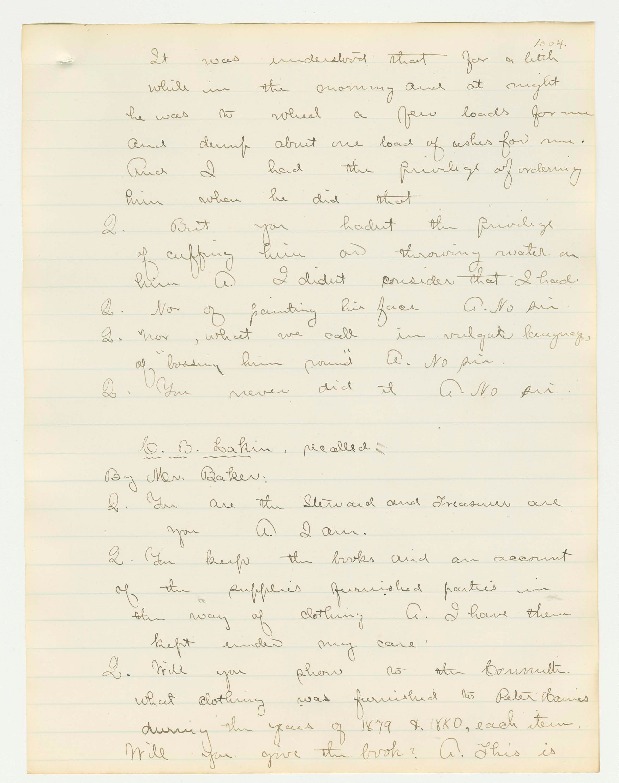 1004.
It was understood that for a little
while in the morning and at night
he was to wheel a few loads for me
and dump about one load of ashes for me.
And I had the privilege of ordering
him when he did that
Q. But you hadnt the privilege
of cuffing him or throwing water on
him A I didnt consider that I had.
Q. Nor of painting his face A. No sir
Q. Nor, what we call in vulgate language,
of "bossing him round" A. No sir.
Q. You never did it A. No sir.
C. B. Lakin, recalled:
By Mr. Baker:
Q. You are the Steward and Treasurer are
you A I am.
Q. You keep the books and an account
of the supplies furnished parties in
the way of clothing A. I have them
kept under my care.
Q. Will you show to the Committe.
what clothing was furnished to Peter
during the years of 1879 & 1880, each item.
Will you give the book? A. This is